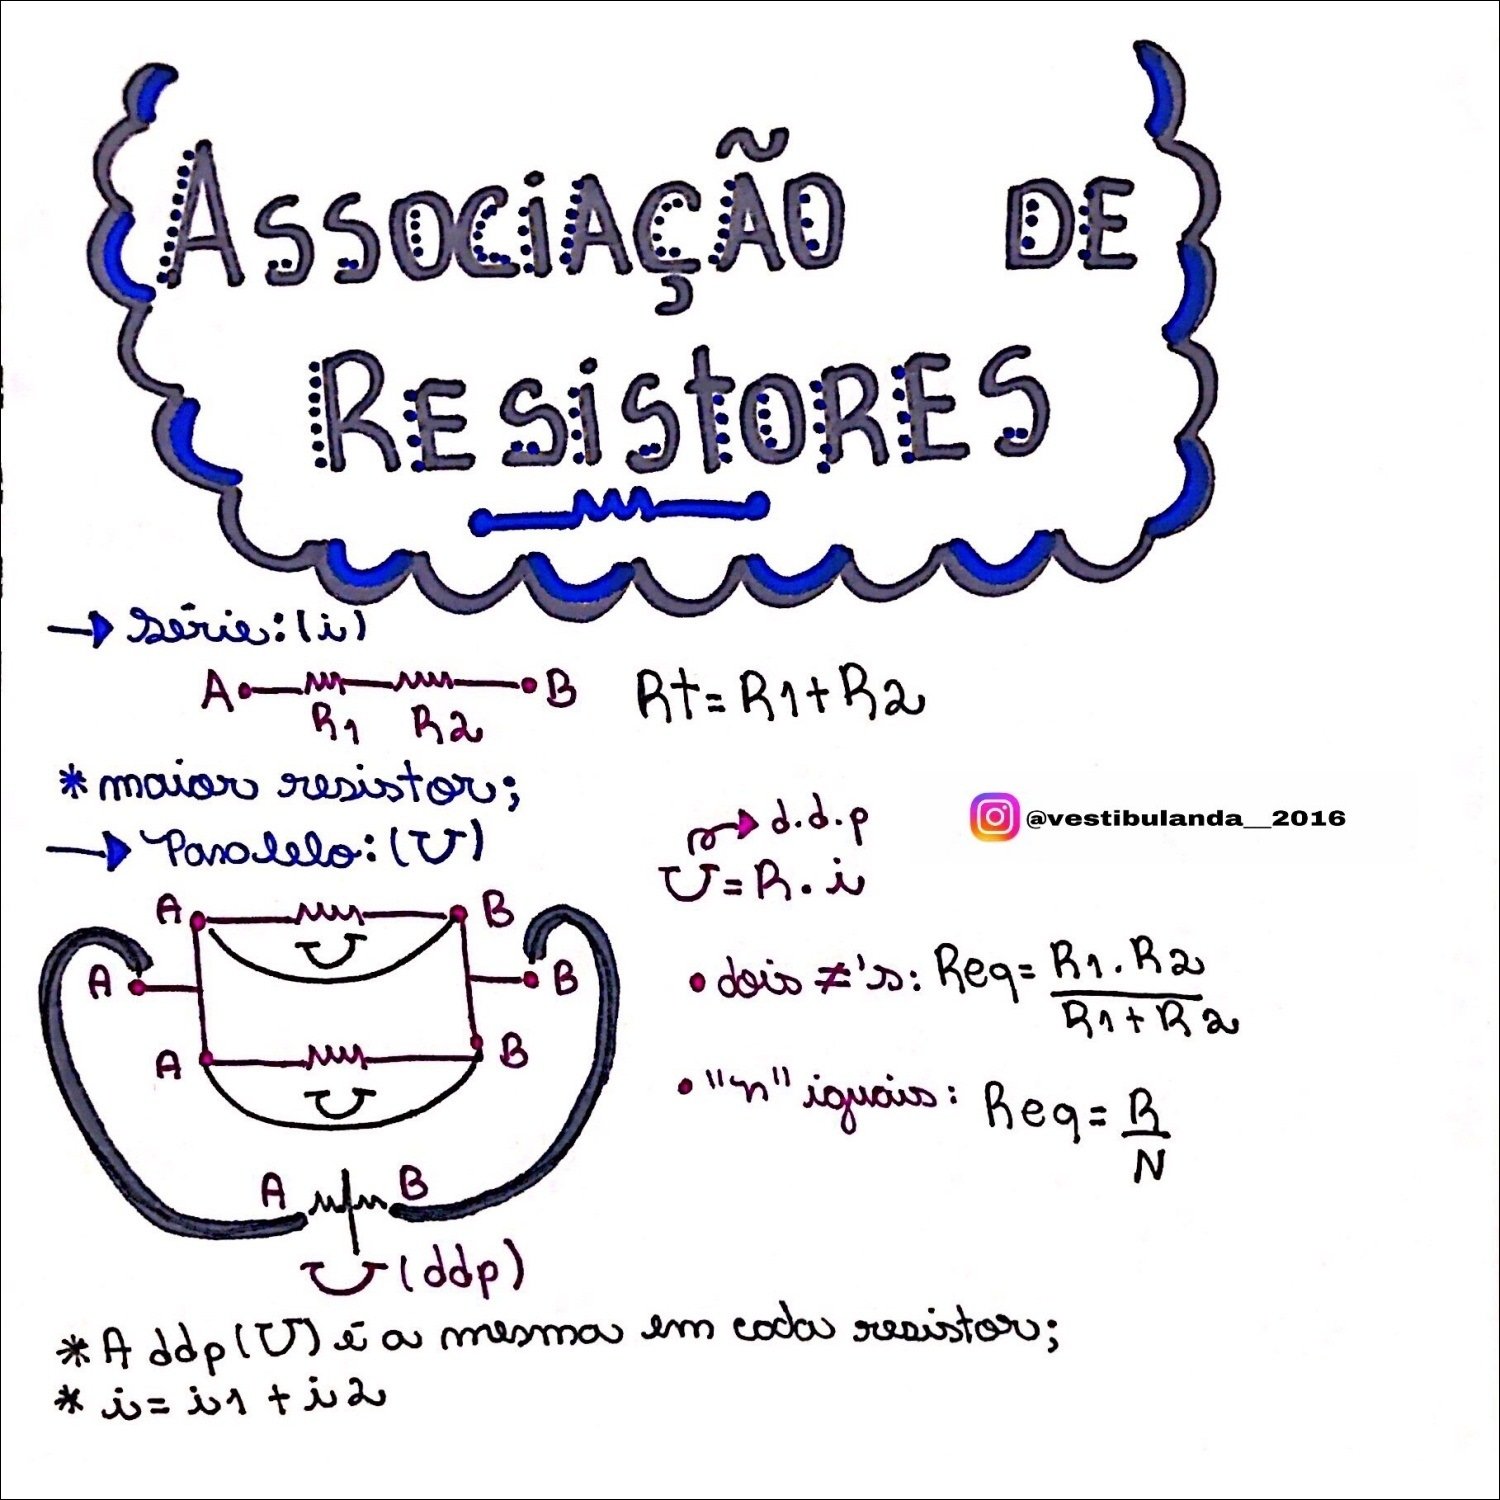 ASSOCIAÇÃO DE
RESISTORES
→ Série: (i)
A B
R1 R2
Rt = R1 + R2
* maior resistor;
→ Paralelo: (U)
d.d.p
U = R . i
@vestibulanda__2016
A B
U
A B
A B
U
• dois ≠'s: Req = R1 . R2
R1 + R2
• "n" iguais: Req = R
N
A B
U (ddp)
* A ddp (U) é a mesma em cada resistor;
* i = i1 + i2